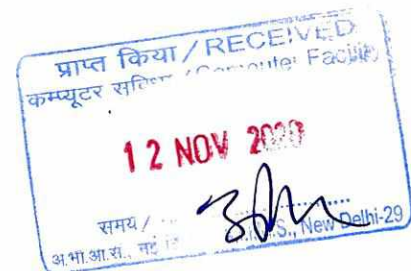 प्राप्त किया / RECEIVED
कम्प्यूटर / Computer Facility
12 NOV 2020
समय /
अ.भा.आ.स., नई S., New Delhi-29